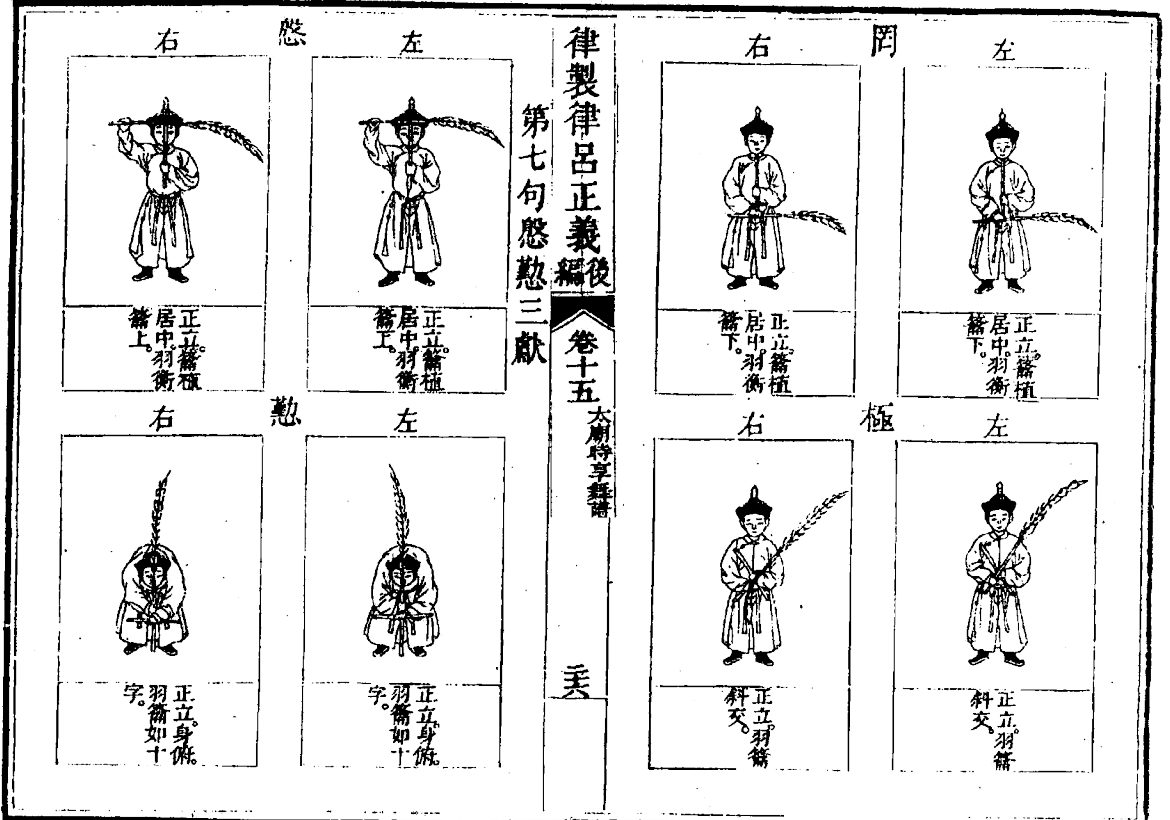 罔
左
正立。籥植
居中。羽衡
籥下。
右
正立。籥植
居中。羽衡
籥下。
極
左
正立。羽籥
斜交。
右
正立。羽籥
斜交。
律製律呂正義後編
卷十五
太廟時享舞譜
第七句慇懃三獻
慇
左
正立。籥植
居中。羽衡
籥上。
右
正立。籥植
居中。羽衡
籥上。
懃
左
正立。身俯。
羽籥如十
字。
右
正立。身俯。
羽籥如十
字。